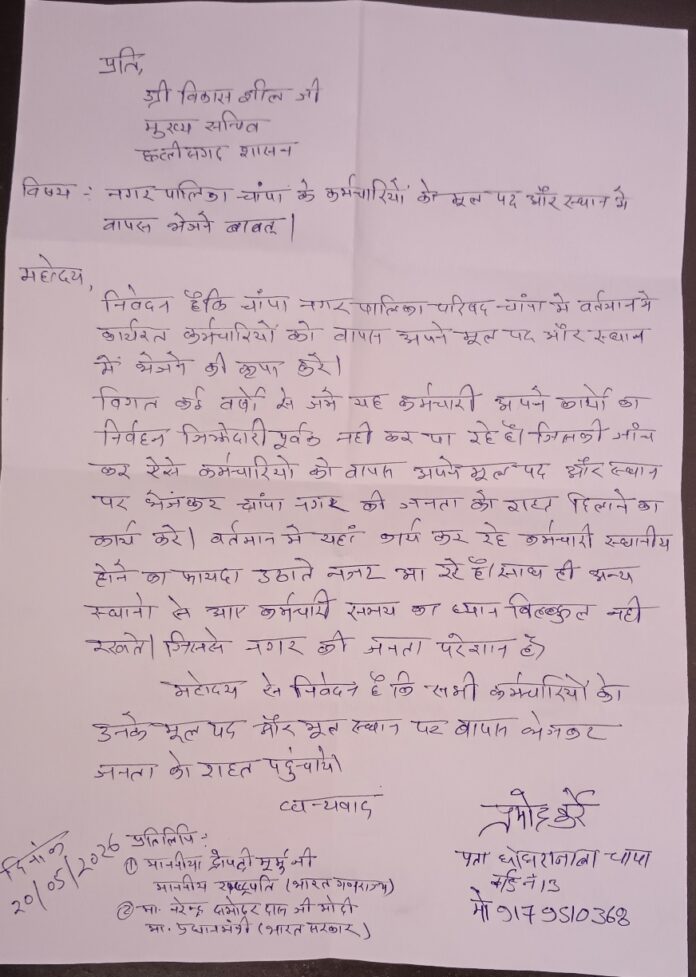 प्रति,
श्री विकास शील जी
मुख्य सचिव
छत्तीसगढ़ शासन
विषय : नगर पालिका चांपा के कर्मचारियों को मूल पद और स्थान में
वापस भेजने बाबत् |
महोदय,
निवेदन है कि चांपा नगर पालिका परिषद चांपा में वर्तमान में
कार्यरत कर्मचारियों को वापस अपने मूल पद और स्थान
में भेजने की कृपा करें |
विगत कई वर्षों से जमे यह कर्मचारी अपने कार्यो का
निर्वहन जिम्मेदारी पूर्वक नही कर पा रहे है | जिसकी जांच
कर ऐसे कर्मचारियों को वापस अपने मूल पद और स्थान
पर भेजकर चांपा नगर की जनता को राहत दिलाने का
कार्य करे | वर्तमान मे यहां कार्य कर रहे कर्मचारी स्थानीय
होने का फायदा उठाते नजर आ रहे है | साथ ही अन्य
स्थानो से आए कर्मचारी समय का ध्यान बिल्कुल नही
रखते | जिससे नगर की जनता परेशान है |
महोदय से निवेदन है कि सभी कर्मचारियों को
उनके मूल पद और मूल स्थान पर वापस भेजकर
जनता को राहत पहुंचाये |
धन्यवाद
दिनांक
20/05/2026
प्रतिलिपि :
① माननीया द्रौपदी मुर्मू जी
माननीय राष्ट्रपति (भारत गणराज्य)
② मा. नरेन्द्र दामोदर दास जी मोदी
मा. प्रधानमंत्री (भारत सरकार)
पता घोघरानाला चांपा
वार्ड नं 13
मो 9179510368